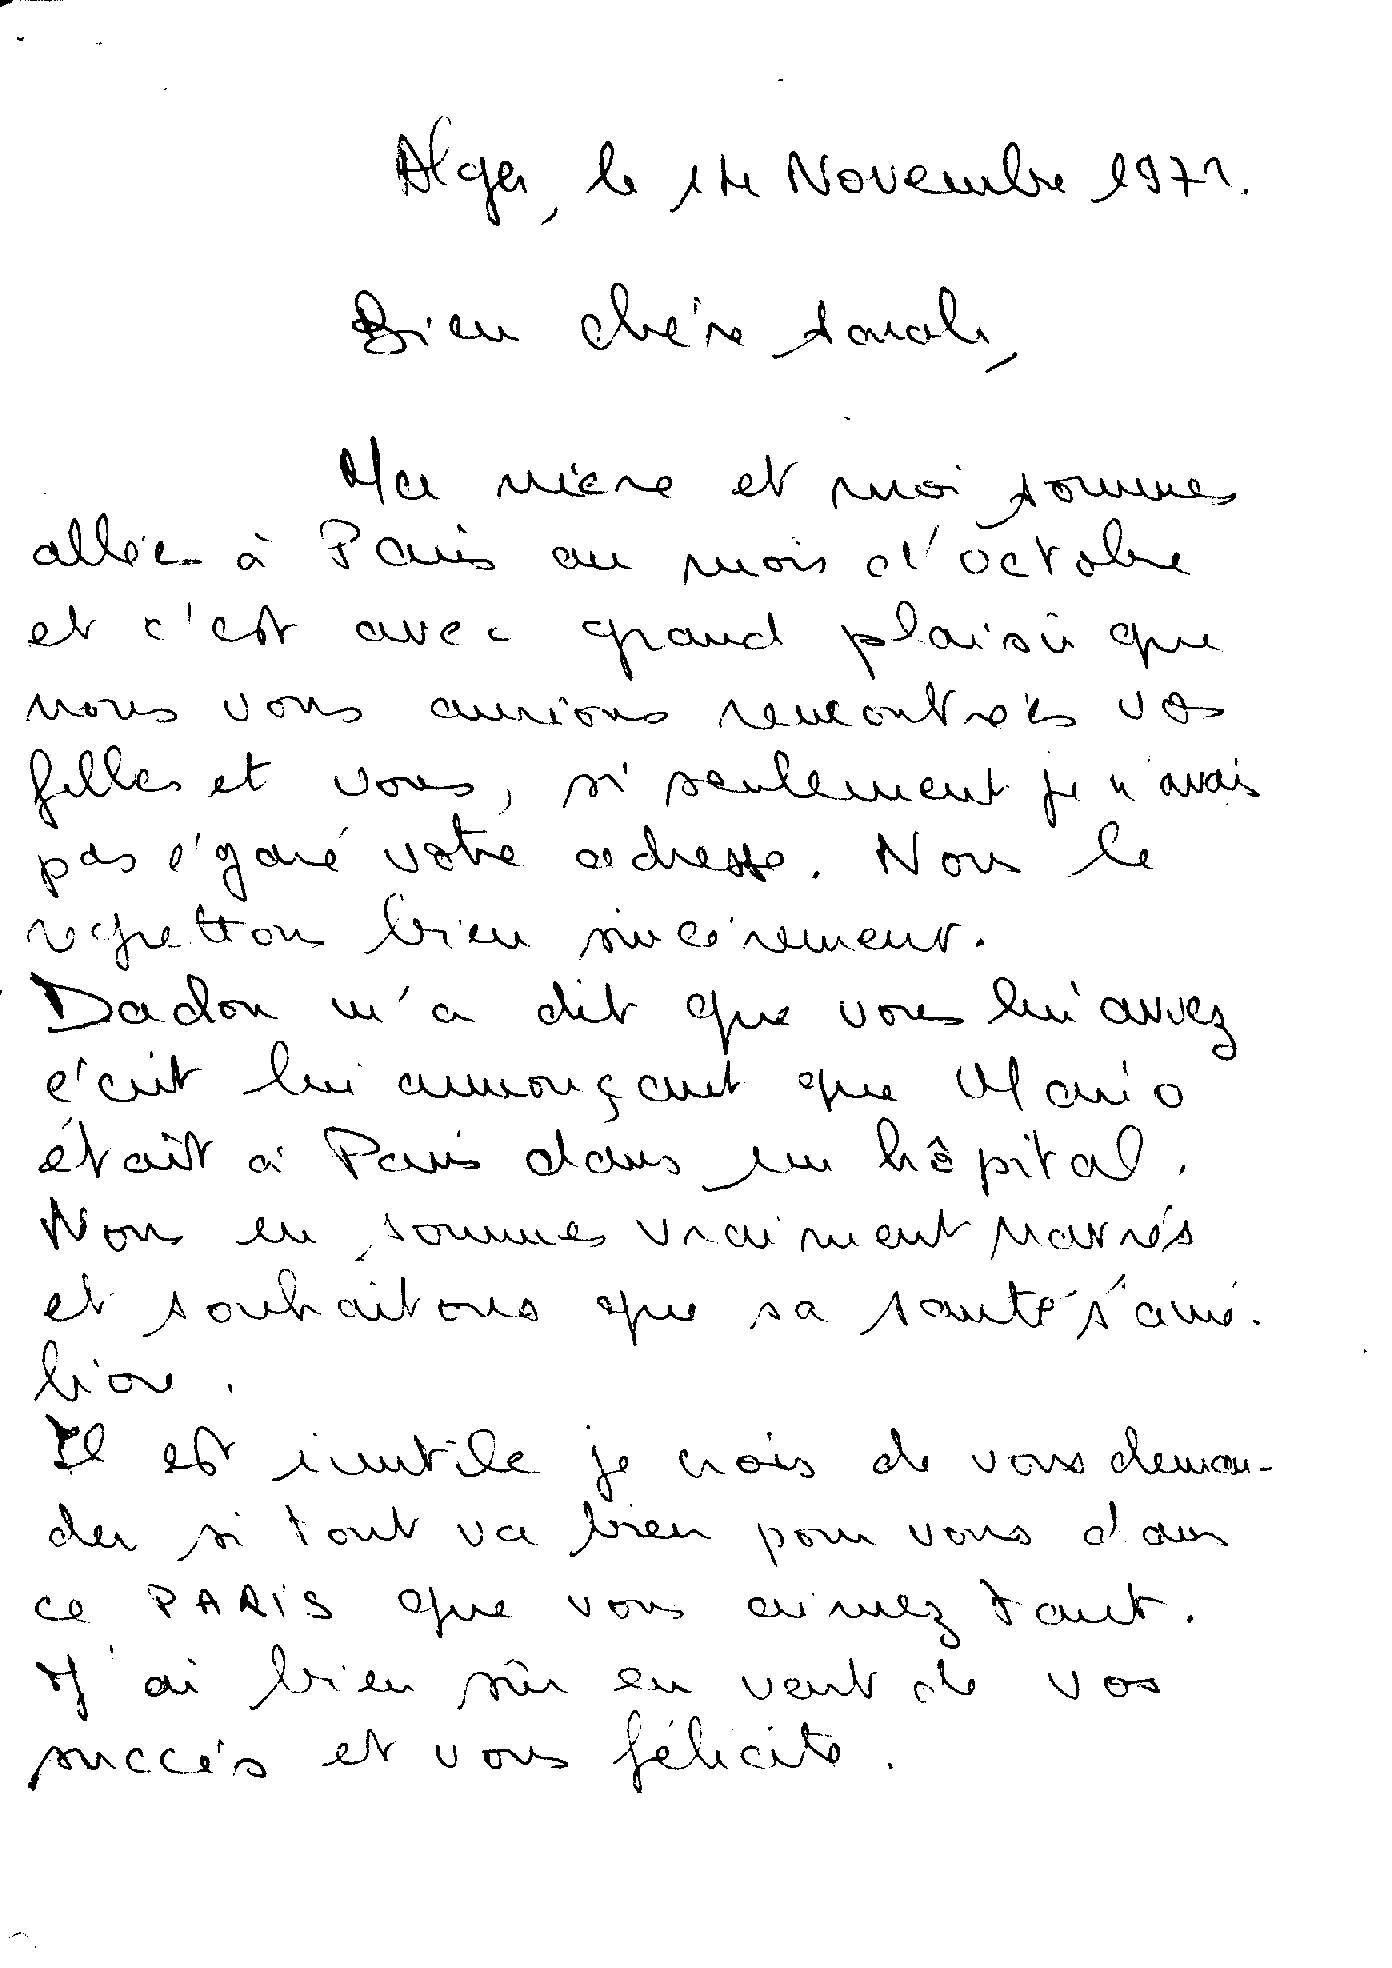 Alger, le 14 Novembre 1971.
Bien chère Sarah,
Ma mère et moi sommes
allées à Paris au mois d'octobre
et c'est avec grand plaisir que
nous vous aurions rencontrées vos
filles et vous, si seulement je n'avais
pas égaré votre adresse. Nous le
regrettons bien sincèrement.
Dadou m'a dit que vous lui aviez
écrit lui annonçant que Mario
était à Paris dans un hôpital.
Nous en sommes vraiment navrés
et souhaitons que sa santé s'amé-
liore.
Il est inutile je crois de vous deman-
der si tout va bien pour vous dans
ce PARIS que vous aimez tant.
J'ai bien sûr eu vent de vos
succès et vous félicite.